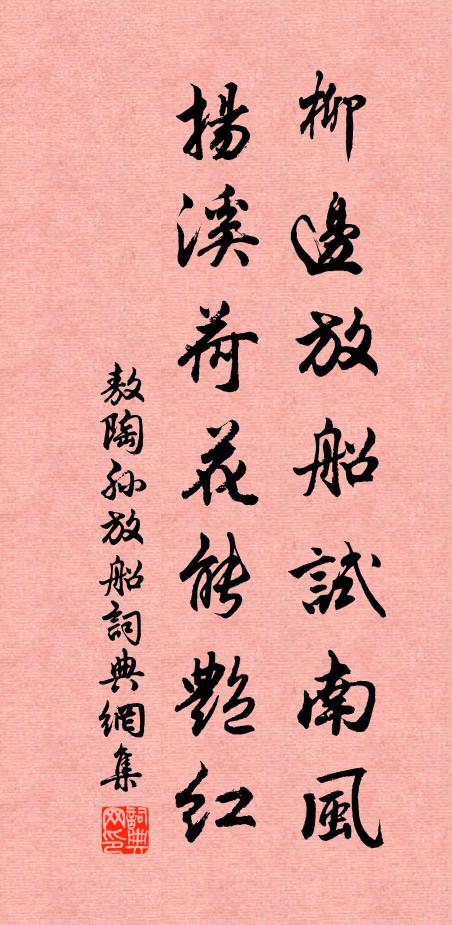 柳邊放船試南風
揚溪荷花能艷紅
敖陶孫放船詞典網集
詞典网印